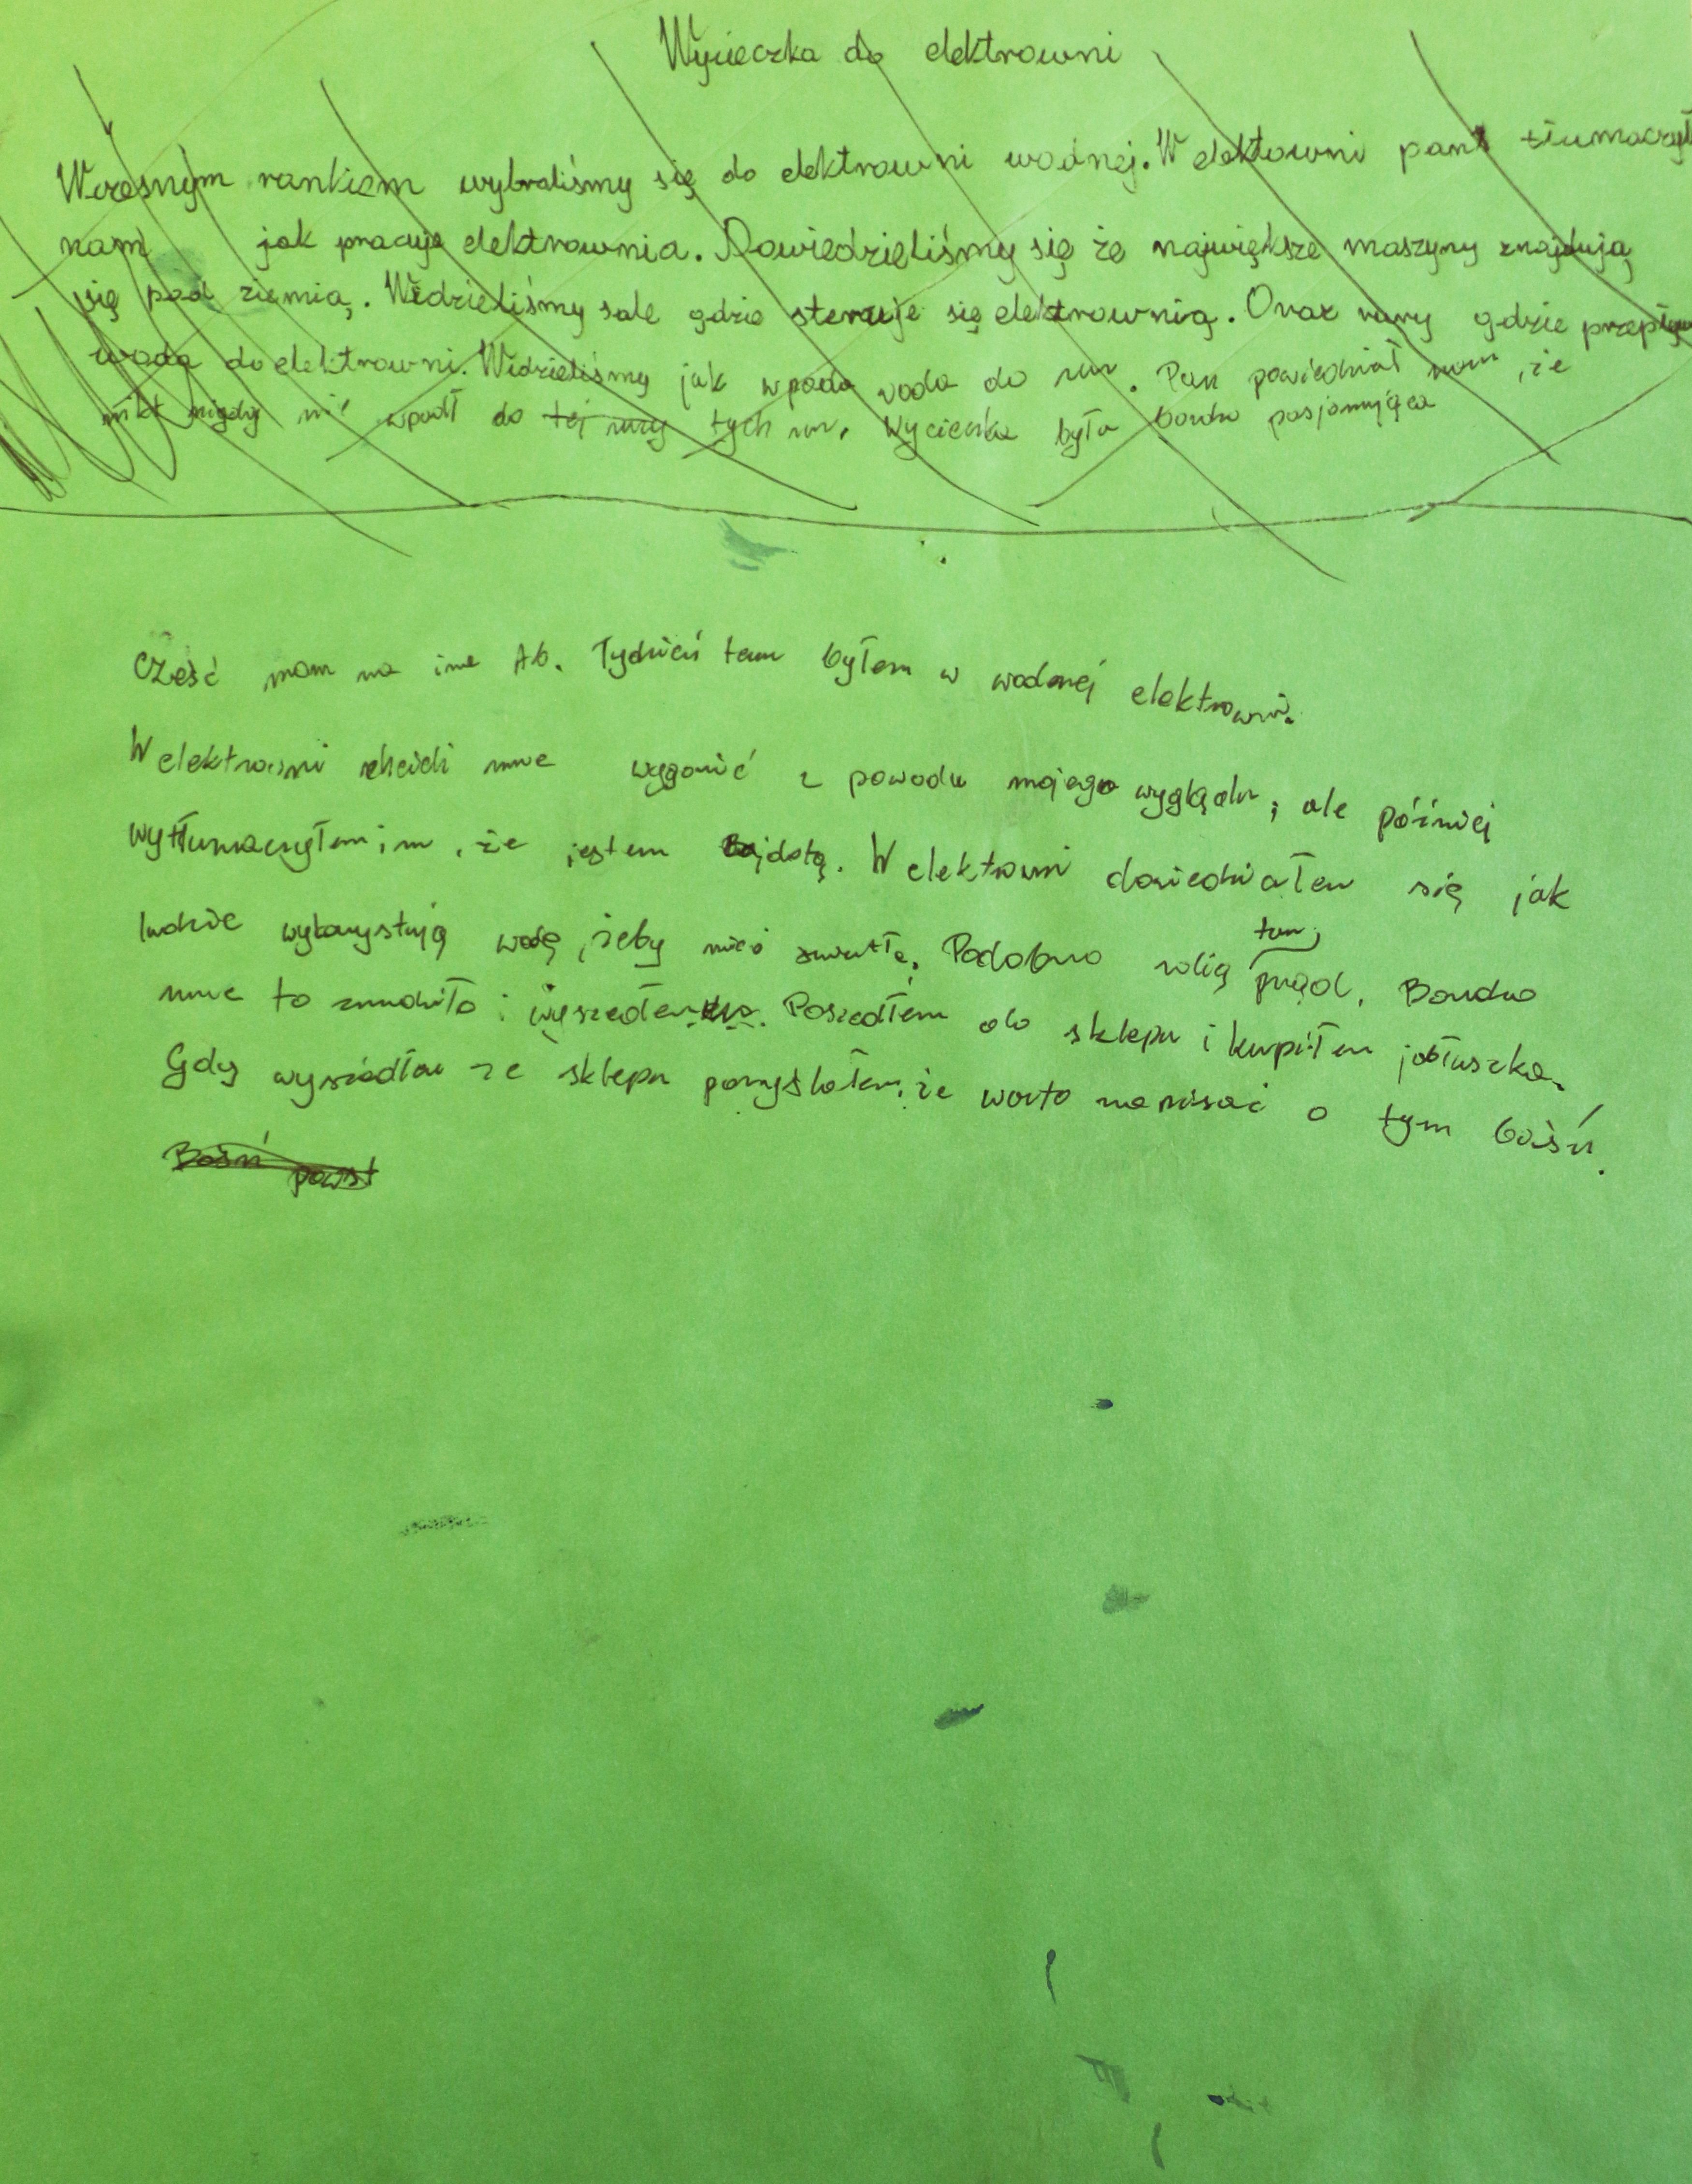 Wycieczka do elektrowni
Wczesnym rankiem wybraliśmy się do elektrowni wodnej. W elektowni pan tłumaczył
nam jak pracuje elektrownia. Dowiedzieliśmy się że największe maszyny znajdują
się pod ziemią. Widzieliśmy sale gdzie steruje się elektrownią. Oraz rury gdzie przepływ
woda do elektrowni. Widzieliśmy jak wpada woda do rur. Pan powiedział nam, że
nikt nigdy nie wpadł do tej rury tych rur. Wycieczka była bardzo pasjonująca
Cześć mam na ime Ab. Tydzień temu byłem w wodnej elektrowni.
W elektrowni chcieli mne wygonić z powodu mojego wyglądu, ale później
wytłumaczyłem im, że jestem Bajdotą. W elektowni dowiedziałem się jak
ludzie wykorzystują wodę, żeby mieć światło. Podobno robią tam prąd. Bardzo
mne to znudziło i wyszedłem. Poszedłem do sklepu i kupiłem jabłuszka.
Gdy wyszedłem ze sklepu pomyślałem, że warto napisać o tym baśń.
Baśń powst